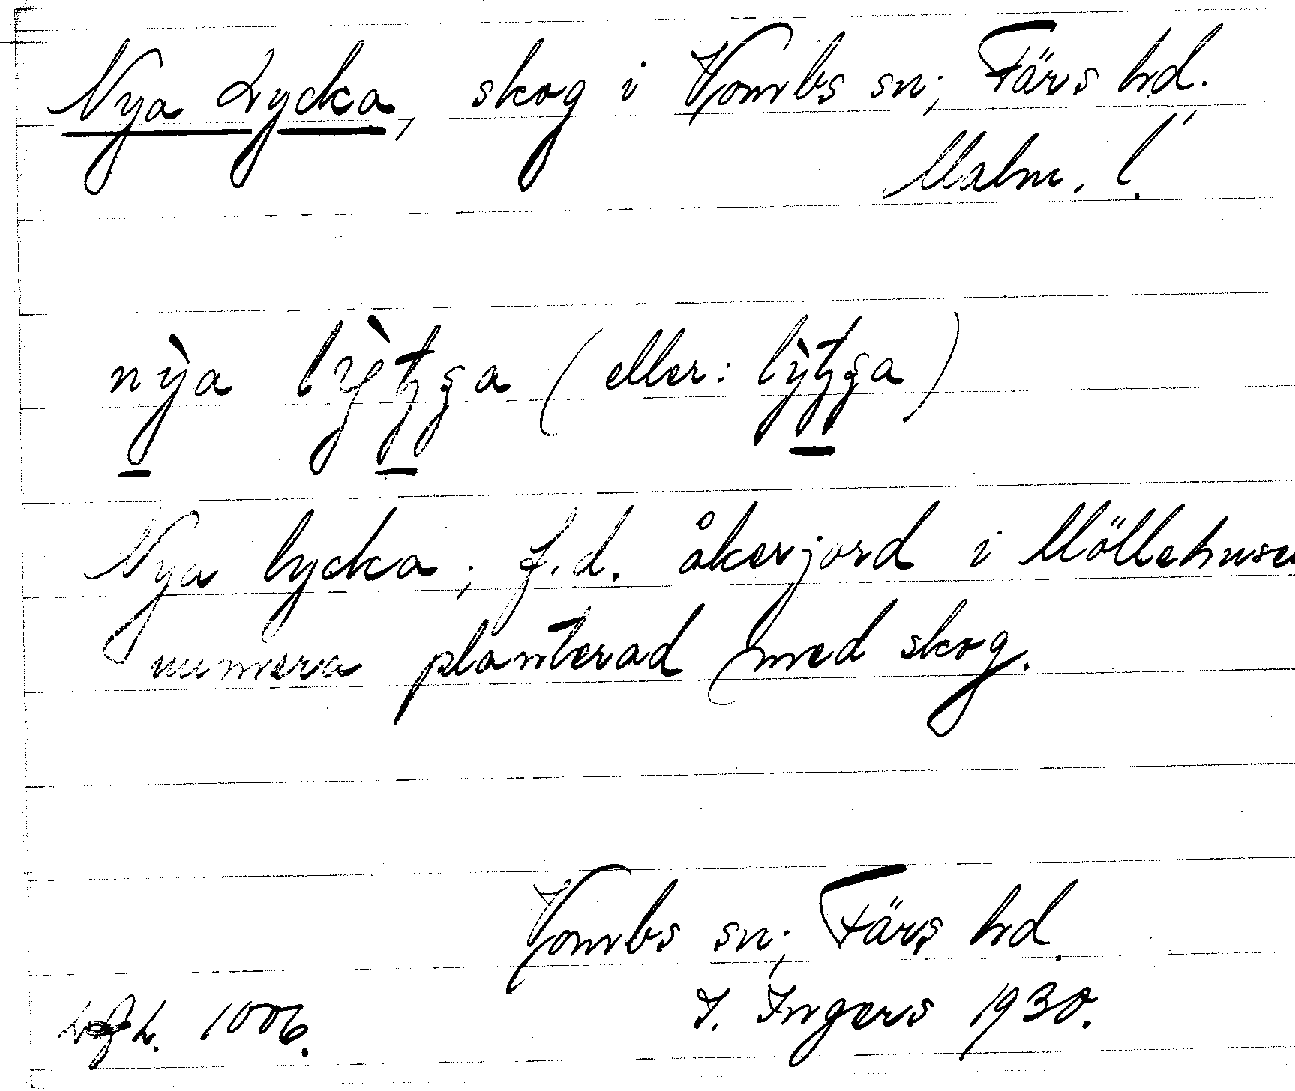 Nya Lycka, skog i Vombs sn; Färs hd.
Malm. l.
nỳa lỳtga (eller: lỳtga)
Nya lycka; f.d. åkerjord i Möllehuse
numera planterad med skog.
Vombs sn; Färs hd.
I. Ingers 1930.
1006.